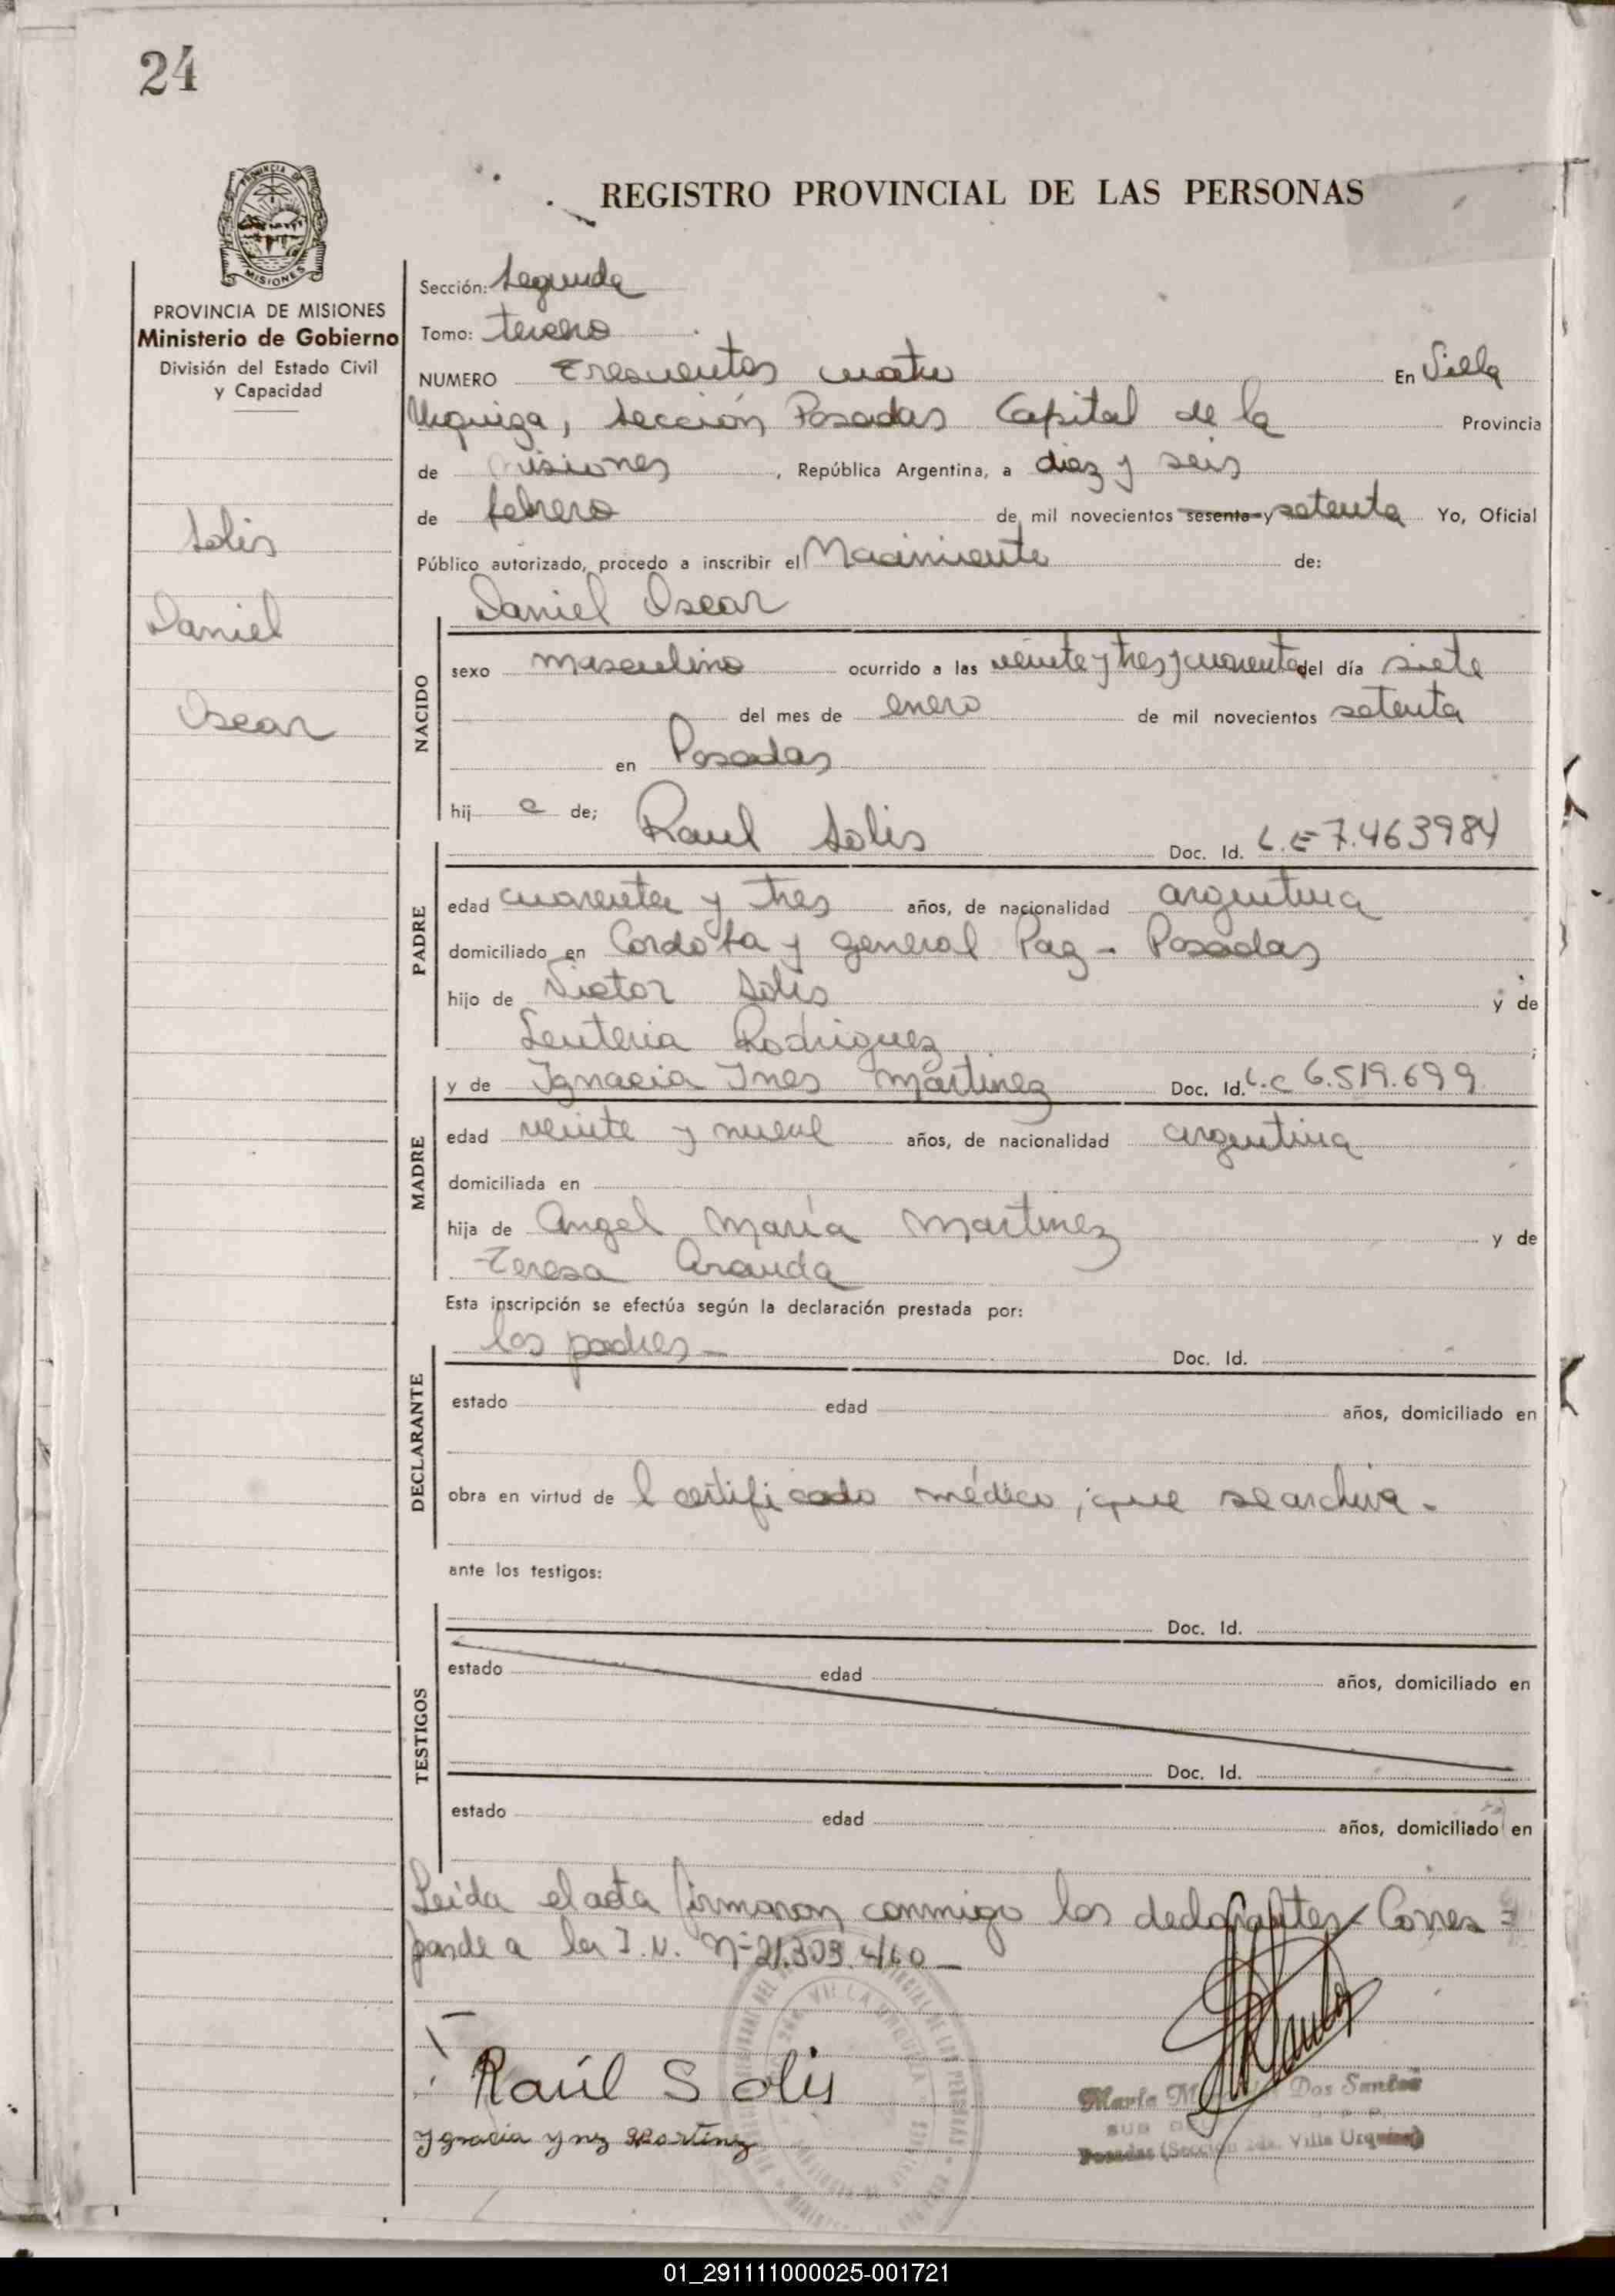 24
PROVINCIA DE
MISIONES
REGISTRO PROVINCIAL DE LAS PERSONAS
PROVINCIA DE MISIONES
Ministerio de Gobierno
División del Estado Civil
y Capacidad
Solis
Daniel
Oscar
Sección: Segunda
Tomo: tercero
NUMERO Trescientos cuatro En Villa
Urquiza, Sección Posadas Capital de la Provincia
de Misiones, República Argentina, a diez y seis
de febrero de mil novecientos sesenta y setenta Yo, Oficial
Público autorizado, procedo a inscribir el Nacimiento de:
Daniel Oscar
NACIDO
sexo masculino ocurrido a las veinte y tres y cuarenta del día siete
del mes de enero de mil novecientos setenta
en Posadas
hij o de;
Raul Solis Doc. Id. L.E 7.463984
PADRE
edad cuarenta y tres años, de nacionalidad argentina
domiciliado en Cordoba y general Paz - Posadas
hijo de Victor Solis y de
Leuteria Rodriguez ;
y de Ignacia Ines Martinez Doc. Id. L.C 6.519.699
MADRE
edad veinte y nueve años, de nacionalidad argentina
domiciliada en
hija de Angel María Martinez y de
Teresa Aranda
Esta inscripción se efectúa según la declaración prestada por:
los padres - Doc. Id.
DECLARANTE
estado edad años, domiciliado en
obra en virtud de l certificado médico, que se archiva.
ante los testigos:
Doc. Id.
TESTIGOS
estado edad años, domiciliado en
Doc. Id.
estado edad años, domiciliado en
Leída el acta firmaron conmigo los declarantes Corres =
ponde a la I.N. Nº 21.303.460 -
Raúl Solis
Ygnacia Ynez Martinez
María Dos Santos
SUB
Posadas (Sección 2da. Villa Urquiza)
01_291111000025-001721